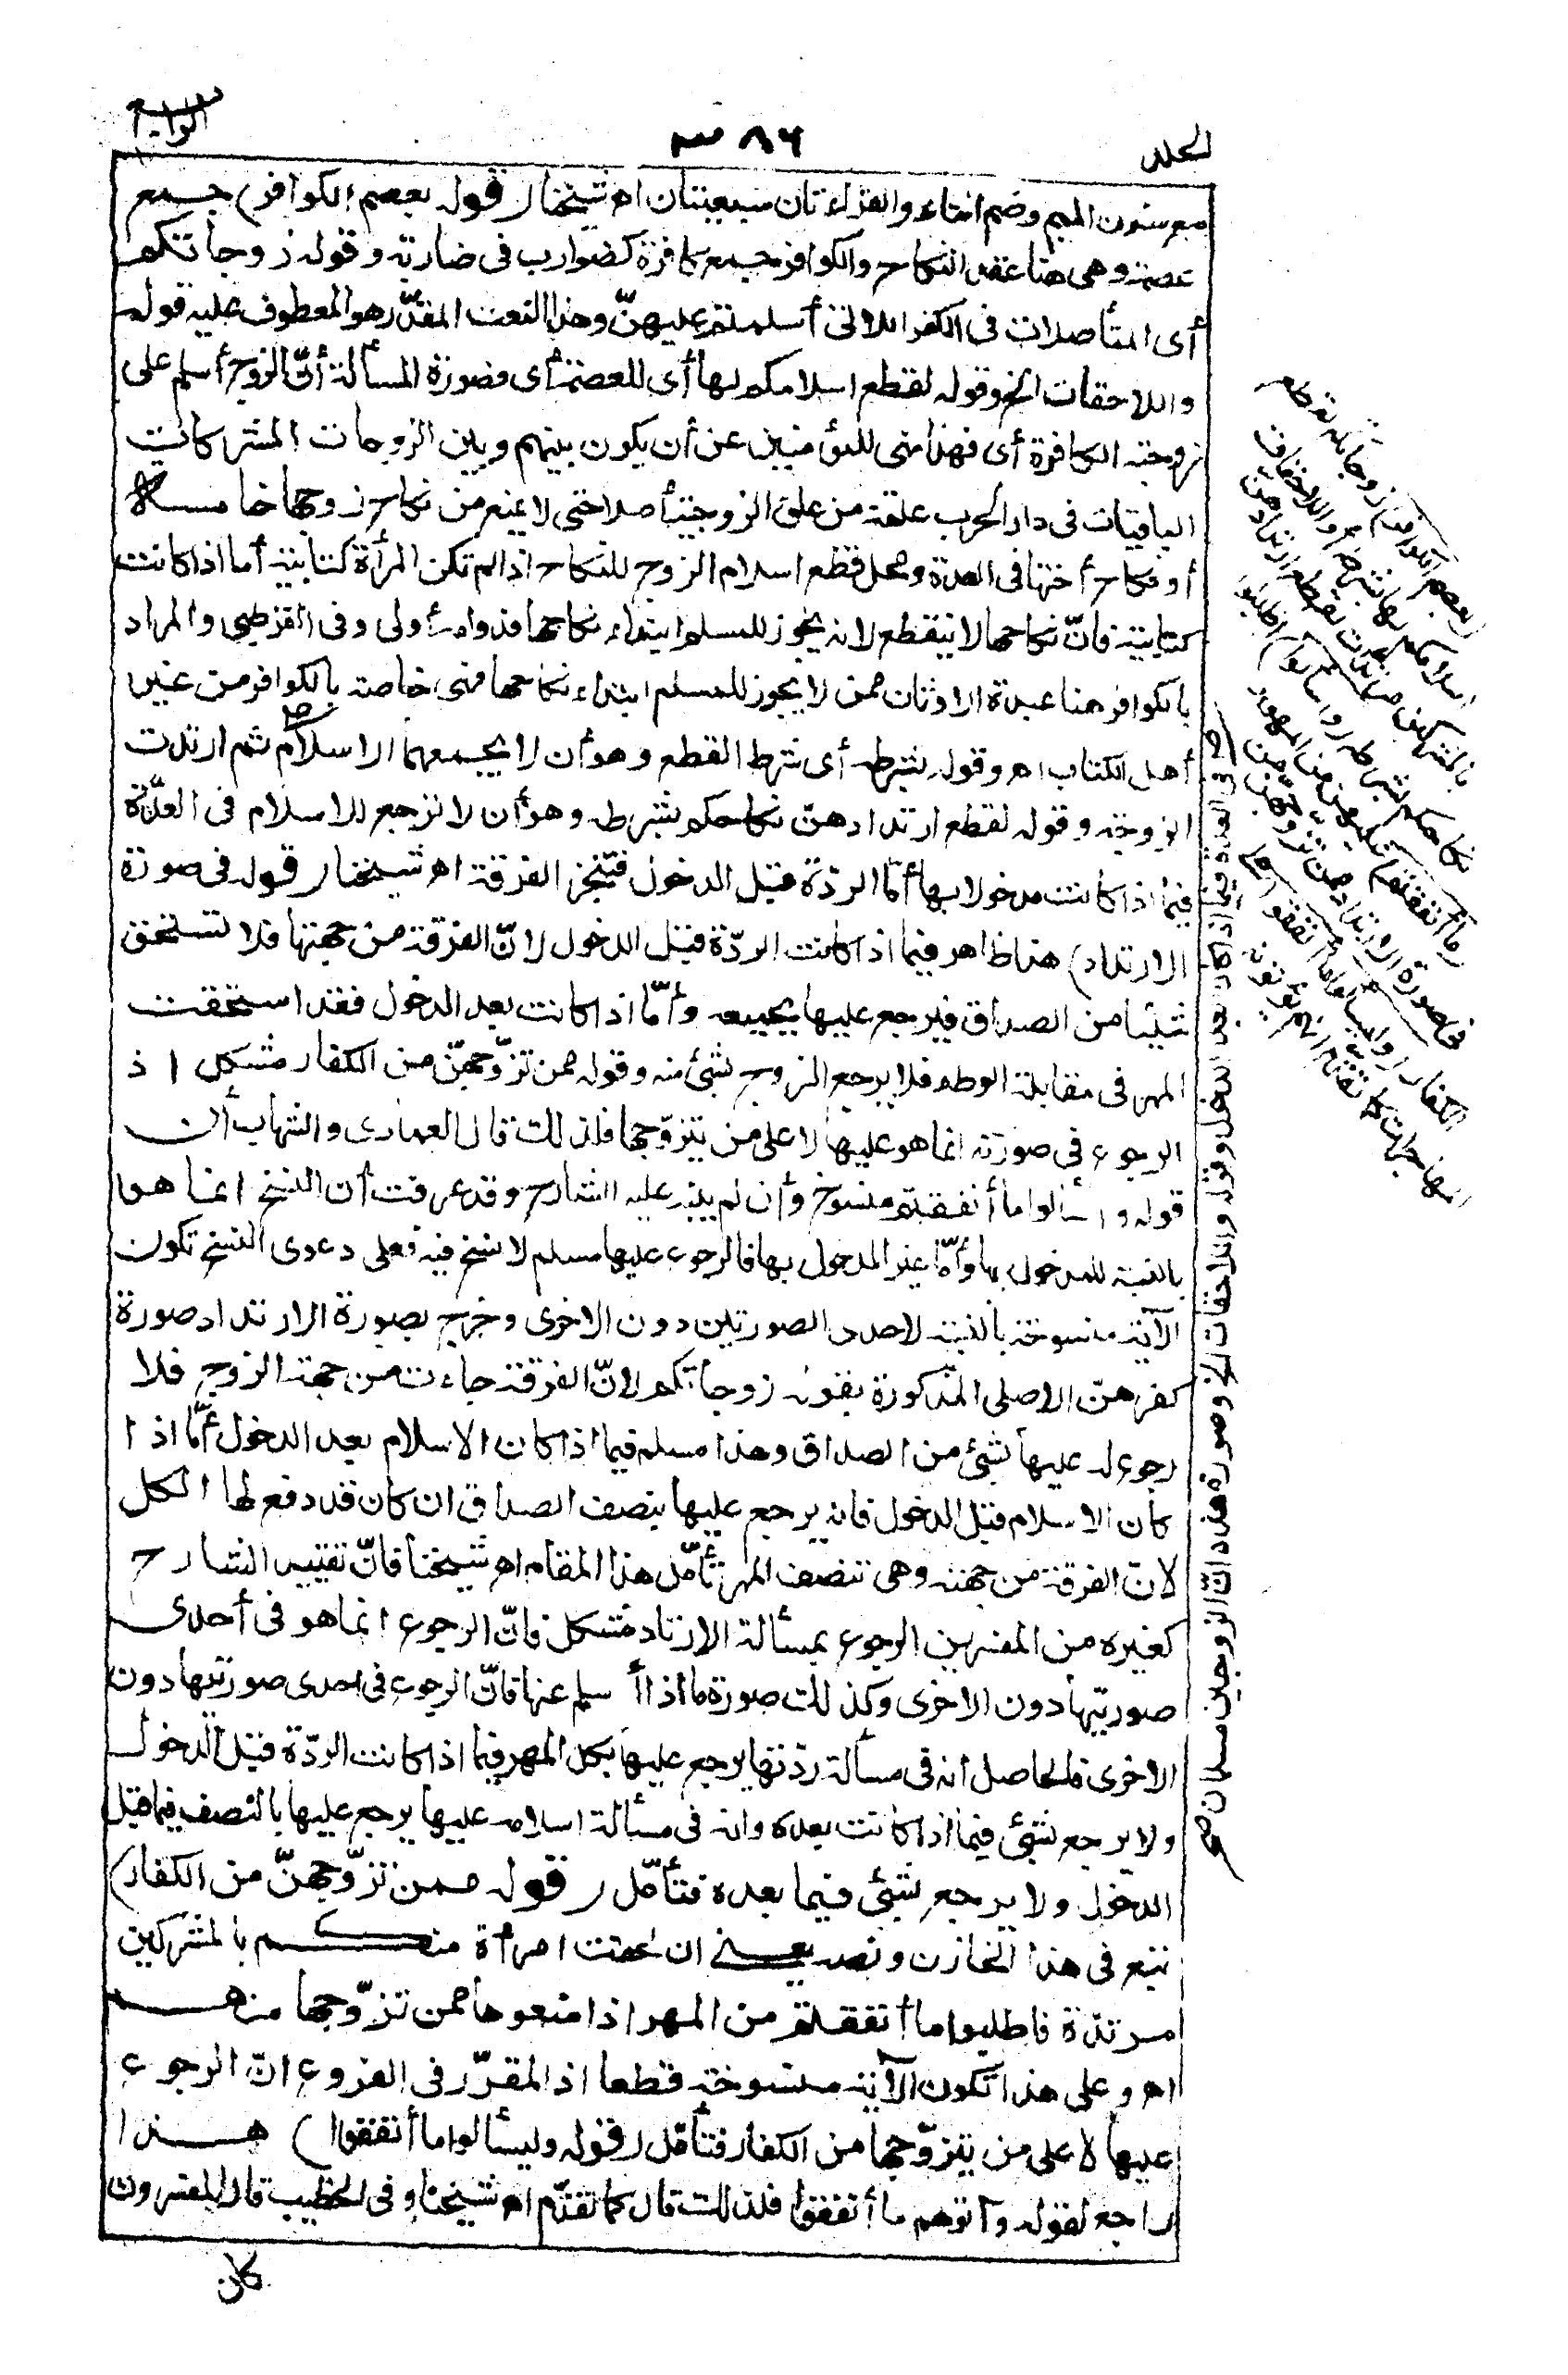 المجلد
٣٨٦
الرابع
مع سكون الميم وضم التاء والقراءتان سبعيتان اه شيخنا (قوله بعصم الكوافر) جمع
عصمة وهى هنا عقد النكاح والكوافر جمع كافرة كضوارب فى ضاربة وقوله زوجاتكم
أى المتأصلات فى الكفر اللاتى أسلمتم عليهنّ وهذا النعت المقدّر هو المعطوف عليه قوله
واللاحقات الخ وقوله لقطع اسلامكم لها أى للعصمة أى فصورة المسألة أنّ الزوج أسلم على
زوجته الكافرة أى فهذا نهى للمؤمنين عن أن يكون بينهم وبين الزوجات المشركات
الباقيات فى دار الحرب علقة من علق الزوجية أصلا حتى لا يمنع من نكاح زوجها خامسة
أو نكاح أختها فى العدة ومحل قطع اسلام الزوج للنكاح اذا لم تكن المرأة كتابية أما اذا كانت
كتابية فانّ نكاحها لا ينقطع لانه يجوز للمسلم ابتداء نكاحها فدوامه أولى وفى القرطبى والمراد
بالكوافر هنا عبدة الاوثان ممن لا يجوز للمسلم ابتداء نكاحها فهى خاصة بالكوافر من غير
أهل الكتاب اه وقوله بشرطه أى شرط القطع وهو أن لا يجمعهما الاسلام ثم ارتدت
الزوجة وقوله لقطع ارتدادهنّ نكاحكم بشرطه وهو أن لا ترجع للاسلام فى العدّة
فيما اذا كانت مدخولا بها أمّا الردّة قبل الدخول فتنجز الفرقة اه شيخنا (قوله فى صورة
الارتداد) هذا ظاهر فيما اذا كانت الردّة قبل الدخول لانّ الفرقة من جهتها فلا تستحق
شيئا من الصداق فيرجع عليها بجميعه وأمّا اذا كانت بعد الدخول فقد استحقت
المهر فى مقابلة الوطء فلا يرجع الزوج بشئ منه وقوله ممن تزوّجهنّ من الكفار مشكل اذ
الرجوع فى صورته انما هو عليها لا على من يتزوّجها فلذلك قال العمادى والشهاب أن
قوله واسألوا ما أنفقتم منسوخ وأن لم ينبه عليه الشارح وقد عرفت أن النسخ انما هو
بالنسبة للمدخول بها وأمّا غير المدخول بها فالرجوع عليها مسلم لا نسخ فيه فعلى دعوى النسخ تكون
الآية منسوخة بالنسبة لاحدى الصورتين دون الاخرى وخرج بصورة الارتداد صورة
كفرهنّ الاصلى المذكورة بقوله زوجاتكم لانّ الفرقة جاءت من جهة الزوج فلا
رجوع له عليها بشئ من الصداق وهذا مسلم فيما اذا كان الاسلام بعد الدخول أمّا اذا
كان الاسلام قبل الدخول فانه يرجع عليها بنصف الصداق ان كان قد دفع لها الكل
لانّ الفرقة من جهته وهى تنصف المهر تأمّل هذا المقام اه شيخنا فانّ تقييد الشارح
كغيره من المفسرين الرجوع بمسألة الارتداد مشكل فانّ الرجوع انما هو فى أحدى
صورتيها دون الاخرى وكذلك صورة ما اذا أسلم عنها فانّ الرجوع فى احدى صورتيها دون
الاخرى فالحاصل أنه فى مسألة ردّتها يرجع عليها بكل المهر فيما اذا كانت الردّة قبل الدخول
ولا يرجع بشئ فيما اذا كانت بعده وانه فى مسألة اسلامه عليها يرجع عليها بالنصف فيما قبل
الدخول ولا يرجع بشئ فيما بعده فتأمّل (قوله ممن تزوّجهنّ من الكفار)
تبع فى هذا الخازن ونصه يعنى ان لحقت امرأة منكم بالمشركين
مرتدّة فاطلبوا ما أنفقتم من المهر اذا منعوها ممن تزوّجها منهم
اه وعلى هذا تكون الآية منسوخة قطعا اذ المقرّر فى الفروع انّ الرجوع
عليها لا على من يتزوّجها من الكفار فتأمّل (قوله وليسألوا ما أنفقوا) هذا
راجع لقوله وآتوهم ما أنفقوا فلذلك قال كما تقدّم اه شيخنا وفى الخطيب قال المفسرون
كان
بعصم الكوافر) زوجاتكم لقطع
اسلامكم لها بشرطه أو اللاحقات
بالمشركين مرتدات لقطع ارتدادهنّ
نكاحكم بشرطه (واسألوا) اطلبوا
(ما أنفقتم) عليهن من المهور
فى صورة الارتداد ممن تزوّجهن من
الكفار (وليسألوا ما أنفقوا) على
المهاجرات كما تقدّم انهم يؤتونه
فى العدة فيما اذا كان بعد الدخول وقوله واللاحقات الخ وصورة هذه انّ الزوجين مسلمان صح